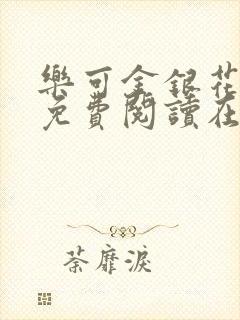 樂可金銀花
免費閱讀在
荼靡淚